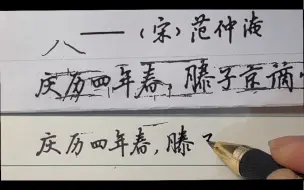 ——（宋）范仲淹
庆历四年春，滕子京谪
庆历四年春，滕